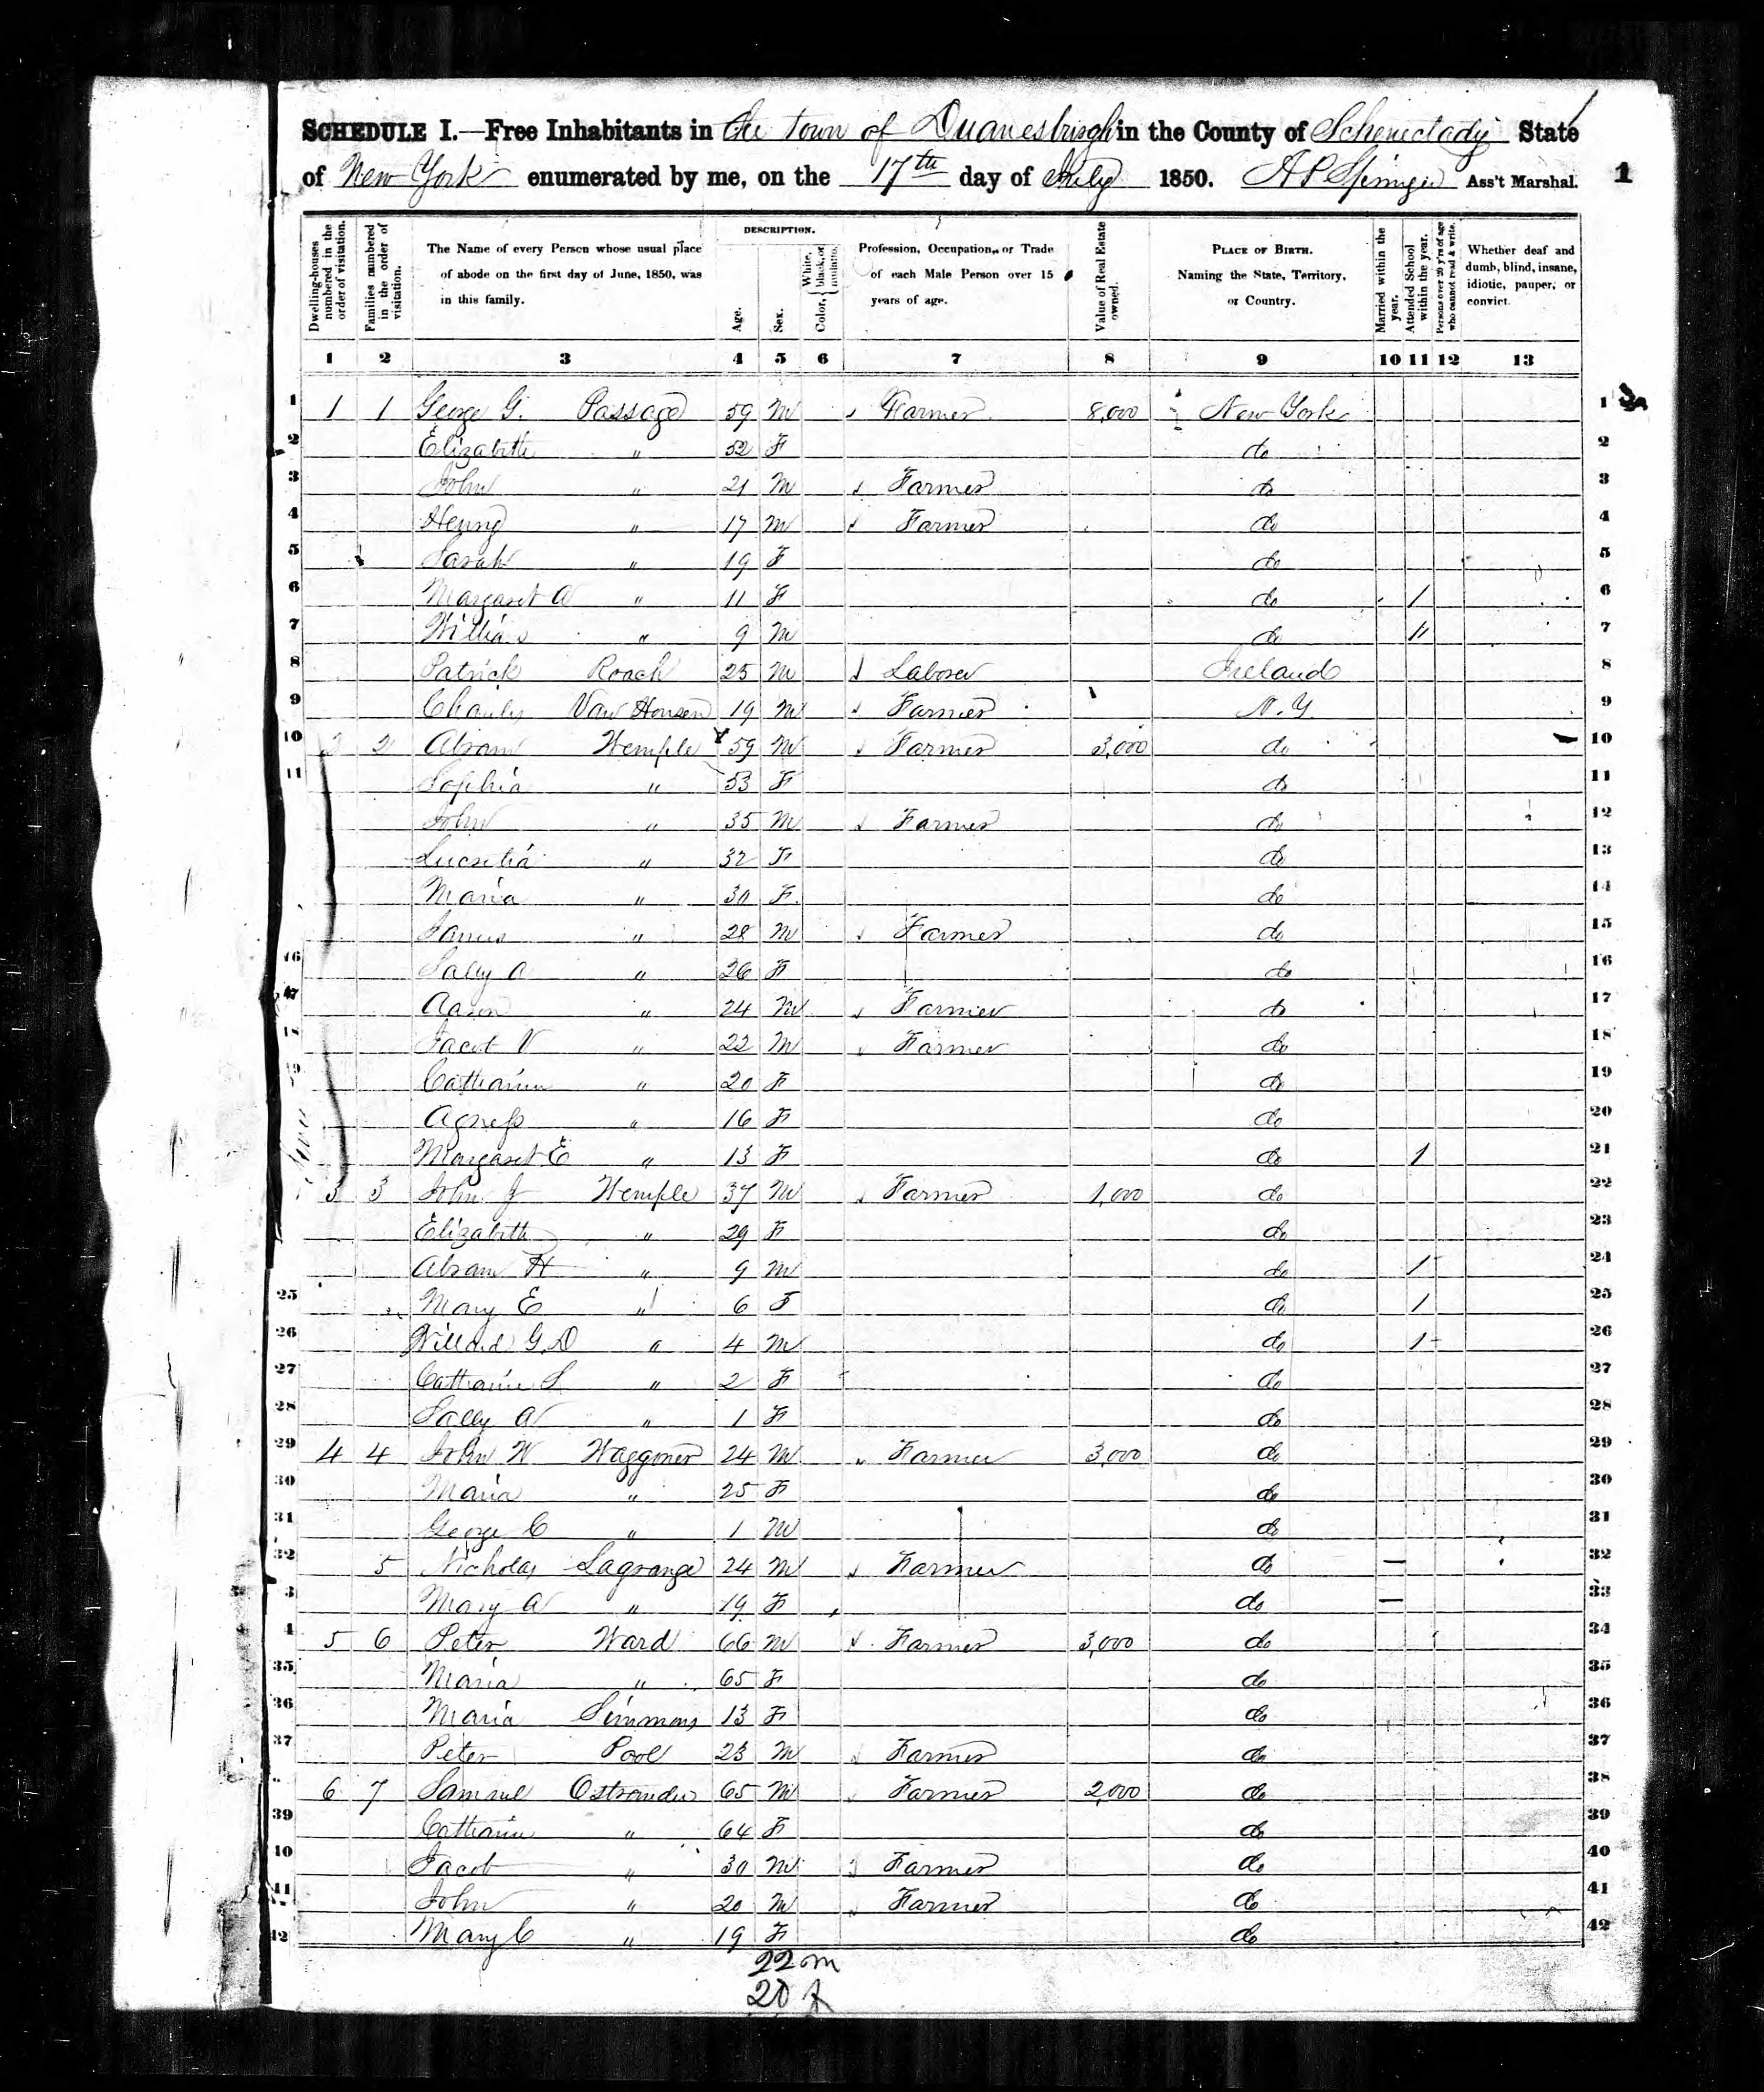 SCHEDULE I.—Free Inhabitants in the town of Duanesburgh in the County of Schenectady State
of New York enumerated by me, on the 17th day of July 1850. A P Springer Ass't Marshal. 1
Dwelling-houses numbered in the order of visitation. Families numbered in the order of visitation. The Name of every Person whose usual place of abode on the first day of June, 1850, was in this family. DESCRIPTION. Age. Sex. Color, White, black, or mulatto. Profession, Occupation, or Trade of each Male Person over 15 years of age. Value of Real Estate owned. PLACE OF BIRTH. Naming the State, Territory, or Country. Married within the year. Attended School within the year. Persons over 20 y'rs of age who cannot read & write. Whether deaf and dumb, blind, insane, idiotic, pauper, or convict.
1 2 3 4 5 6 7 8 9 10 11 12 13
1 1 1 George G. Passage 59 M Farmer 8,000 New York 1
2 Elizabeth " 52 F do 2
3 John " 21 M Farmer do 3
4 Henry " 17 M Farmer do 4
5 Sarah " 19 F do 5
6 Margaret A " 11 F do 1 6
7 William " 9 M do 11 7
8 Patrick Roach 25 M Laborer Ireland 8
9 Charles Van Housen 19 M Farmer N.Y. 9
10 2 2 Abram Wemple 59 M Farmer 3,000 do 10
11 Sophia " 53 F do 11
John " 35 M Farmer do 12
Lucretia " 32 F do 13
Maria " 30 F do 14
James " 28 M Farmer do 15
16 Sally A " 26 F do 16
17 Aaron " 24 M Farmer do 17
18 Jacob V " 22 M Farmer do 18
19 Catharine " 20 F do 19
Agness " 16 F do 20
Margaret E " 13 F do 1 21
3 3 John J Wemple 37 M Farmer 1,000 do 22
Elizabeth " 29 F do 23
Abram H " 9 M do 1 24
25 Mary E " 6 F do 1 25
26 Willard G. D " 4 M do 1 26
27 Catharine S " 2 F do 27
28 Sally A " 1 F do 28
29 4 4 John W Waggoner 24 M Farmer 3,000 do 29
30 Maria " 25 F do 30
31 George C " 1 M do 31
32 5 Nicholas Lagrange 24 M Farmer do — 32
3 Mary A " 19 F do — 33
5 6 Peter Ward 66 M Farmer 3,000 do 34
35 Maria " 65 F do 35
36 Maria Simmons 13 F do 36
37 Peter Pool 23 M Farmer do 37
6 7 Samuel Ostrander 65 M Farmer 2,000 do 38
39 Catharine " 64 F do 39
40 Jacob " 30 M Farmer do 40
41 John " 20 M Farmer do 41
42 Mary C " 19 F do 42
22 m
20 f